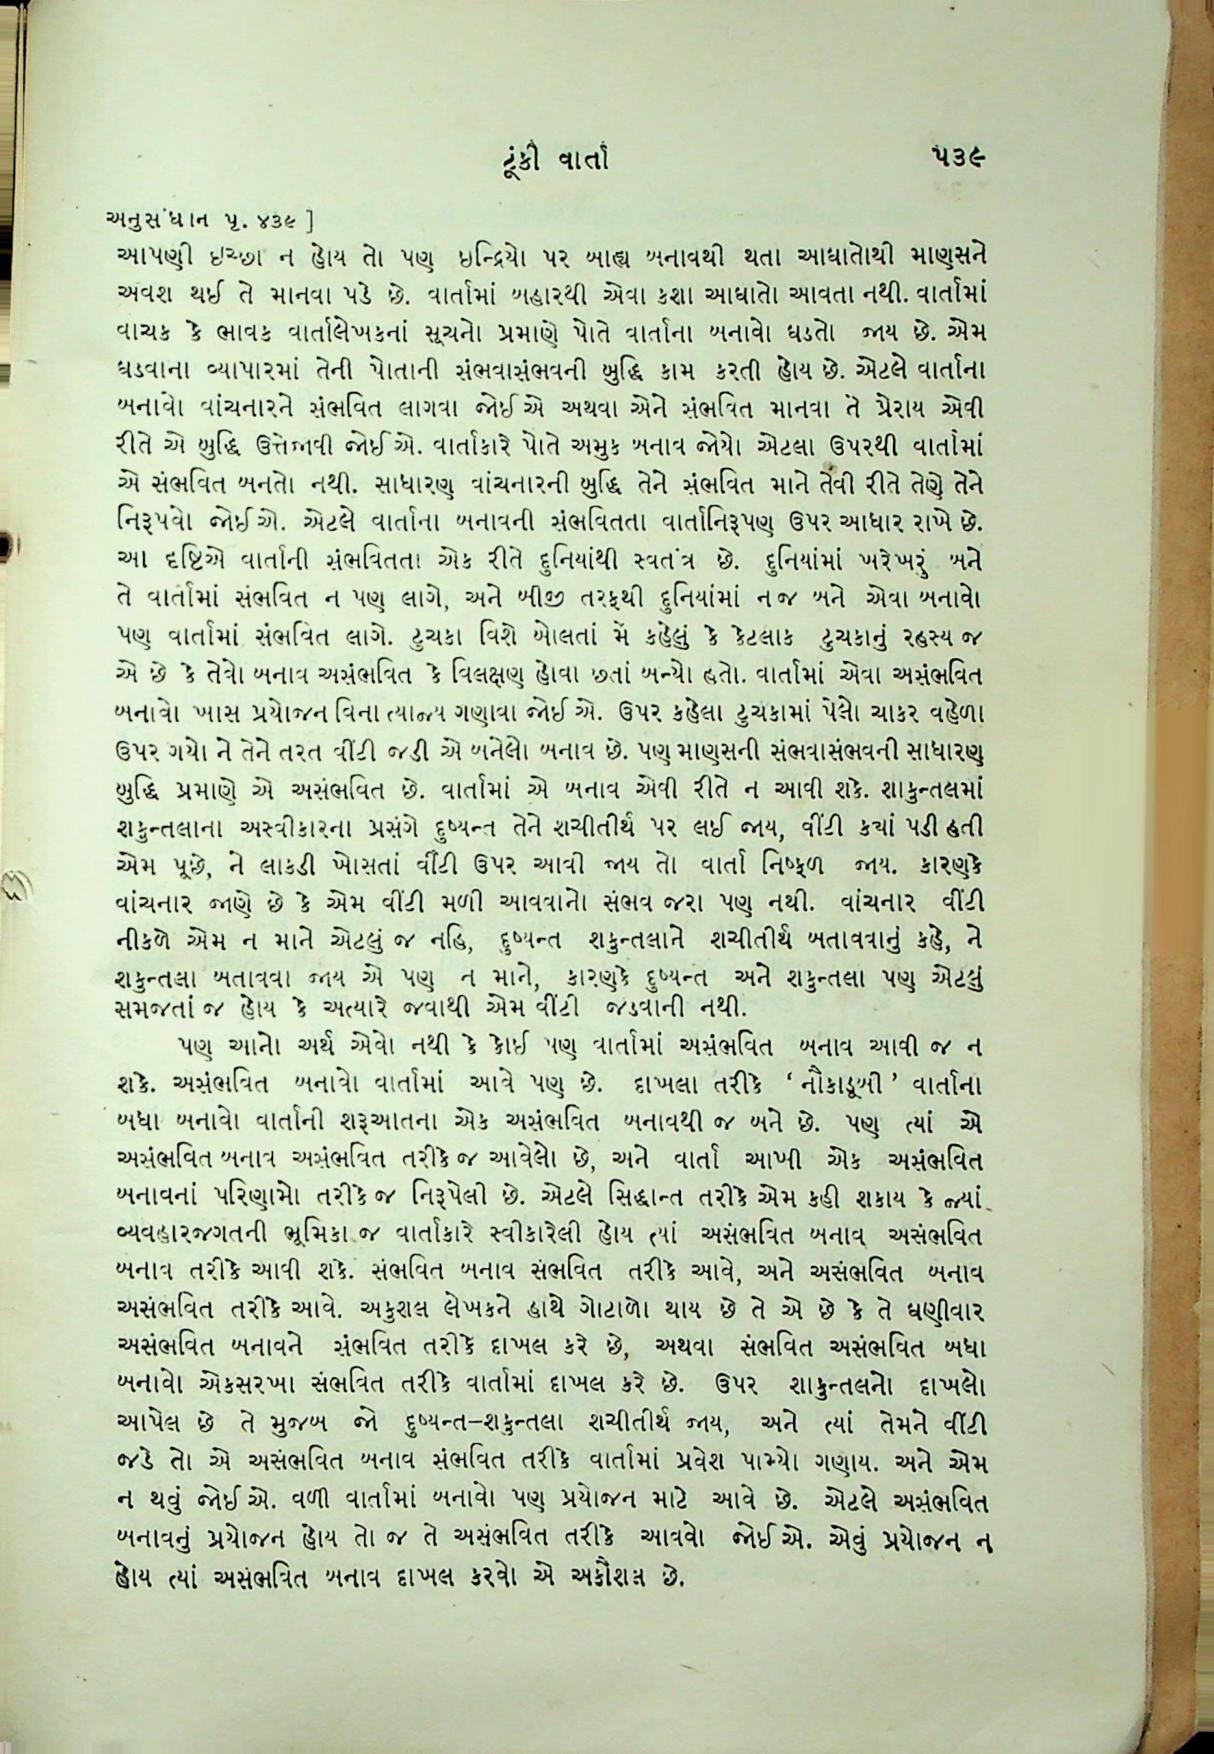 ટૂંકી વાર્તા ૫૩૯
અનુસંધાન પૃ. ૪૩૯ ]
આપણી ઇચ્છા ન હોય તો પણ ઇન્દ્રિયો પર બાહ્ય બનાવથી થતા આઘાતોથી માણસને
અવશ થઈ તે માનવા પડે છે. વાર્તામાં બહારથી એવા કશા આઘાતો આવતા નથી. વાર્તામાં
વાચક કે ભાવક વાર્તાલેખકનાં સૂચનો પ્રમાણે પોતે વાર્તાના બનાવો ઘડતો જાય છે. એમ
ઘડવાના વ્યાપારમાં તેની પોતાની સંભવાસંભવની બુદ્ધિ કામ કરતી હોય છે. એટલે વાર્તાના
બનાવો વાંચનારને સંભવિત લાગવા જોઈએ અથવા એને સંભવિત માનવા તે પ્રેરાય એવી
રીતે એ બુદ્ધિ ઉત્તેજાવી જોઈએ. વાર્તાકારે પોતે અમુક બનાવ જોયો એટલા ઉપરથી વાર્તામાં
એ સંભવિત બનતો નથી. સાધારણ વાંચનારની બુદ્ધિ તેને સંભવિત માને તેવી રીતે તેણે તેને
નિરૂપવો જોઈએ. એટલે વાર્તાના બનાવની સંભવિતતા વાર્તાનિરૂપણ ઉપર આધાર રાખે છે.
આ દૃષ્ટિએ વાર્તાની સંભવિતતા એક રીતે દુનિયાંથી સ્વતંત્ર છે. દુનિયાંમાં ખરેખરું બને
તે વાર્તામાં સંભવિત ન પણ લાગે, અને બીજી તરફથી દુનિયાંમાં નજ બને એવા બનાવો
પણ વાર્તામાં સંભવિત લાગે. ટુચકા વિશે બોલતાં મેં કહેલું કે કેટલાક ટુચકાનું રહસ્ય જ
એ છે કે તેવો બનાવ અસંભવિત કે વિલક્ષણ હોવા છતાં બન્યો હતો. વાર્તામાં એવા અસંભવિત
બનાવો ખાસ પ્રયોજન વિના ત્યાજ્ય ગણાવા જોઈએ. ઉપર કહેલા ટુચકામાં પેલો ચાકર વહેળા
ઉપર ગયો ને તેને તરત વીંટી જડી એ બનેલો બનાવ છે. પણ માણસની સંભવાસંભવની સાધારણ
બુદ્ધિ પ્રમાણે એ અસંભવિત છે. વાર્તામાં એ બનાવ એવી રીતે ન આવી શકે. શાકુન્તલમાં
શકુન્તલાના અસ્વીકારના પ્રસંગે દુષ્યન્ત તેને શચીતીર્થ પર લઈ જાય, વીંટી ક્યાં પડી હતી
એમ પૂછે, ને લાકડી ખોસતાં વીંટી ઉપર આવી જાય તો વાર્તા નિષ્ફળ જાય. કારણકે
વાંચનાર જાણે છે કે એમ વીંટી મળી આવવાનો સંભવ જરા પણ નથી. વાંચનાર વીંટી
નીકળે એમ ન માને એટલું જ નહિ, દુષ્યન્ત શકુન્તલાને શચીતીર્થ બતાવવાનું કહે, ને
શકુન્તલા બતાવવા જાય એ પણ ન માને, કારણકે દુષ્યન્ત અને શકુન્તલા પણ એટલું
સમજતાં જ હોય કે અત્યારે જવાથી એમ વીંટી જડવાની નથી.
પણ આનો અર્થ એવો નથી કે કોઈ પણ વાર્તામાં અસંભવિત બનાવ આવી જ ન
શકે. અસંભવિત બનાવો વાર્તામાં આવે પણ છે. દાખલા તરીકે ‘ નૌકાડૂબી ’ વાર્તાના
બધા બનાવો વાર્તાની શરૂઆતના એક અસંભવિત બનાવથી જ બને છે. પણ ત્યાં એ
અસંભવિત બનાવ અસંભવિત તરીકે જ આવેલો છે, અને વાર્તા આખી એક અસંભવિત
બનાવનાં પરિણામો તરીકે જ નિરૂપેલી છે. એટલે સિદ્ધાન્ત તરીકે એમ કહી શકાય કે જ્યાં
વ્યવહારજગતની ભૂમિકા જ વાર્તાકારે સ્વીકારેલી હોય ત્યાં અસંભવિત બનાવ અસંભવિત
બનાવ તરીકે આવી શકે. સંભવિત બનાવ સંભવિત તરીકે આવે, અને અસંભવિત બનાવ
અસંભવિત તરીકે આવે. અકુશલ લેખકને હાથે ગોટાળો થાય છે તે એ છે કે તે ઘણીવાર
અસંભવિત બનાવને સંભવિત તરીકે દાખલ કરે છે, અથવા સંભવિત અસંભવિત બધા
બનાવો એકસરખા સંભવિત તરીકે વાર્તામાં દાખલ કરે છે. ઉપર શાકુન્તલનો દાખલો
આપેલ છે તે મુજબ જો દુષ્યન્ત–શકુન્તલા શચીતીર્થ જાય, અને ત્યાં તેમને વીંટી
જડે તો એ અસંભવિત બનાવ સંભવિત તરીકે વાર્તામાં પ્રવેશ પામ્યો ગણાય. અને એમ
ન થવું જોઈએ. વળી વાર્તામાં બનાવો પણ પ્રયોજન માટે આવે છે. એટલે અસંભવિત
બનાવનું પ્રયોજન હોય તો જ તે અસંભવિત તરીકે આવવો જોઈએ. એવું પ્રયોજન ન
હોય ત્યાં અસંભવિત બનાવ દાખલ કરવો એ અકૌશલ છે.